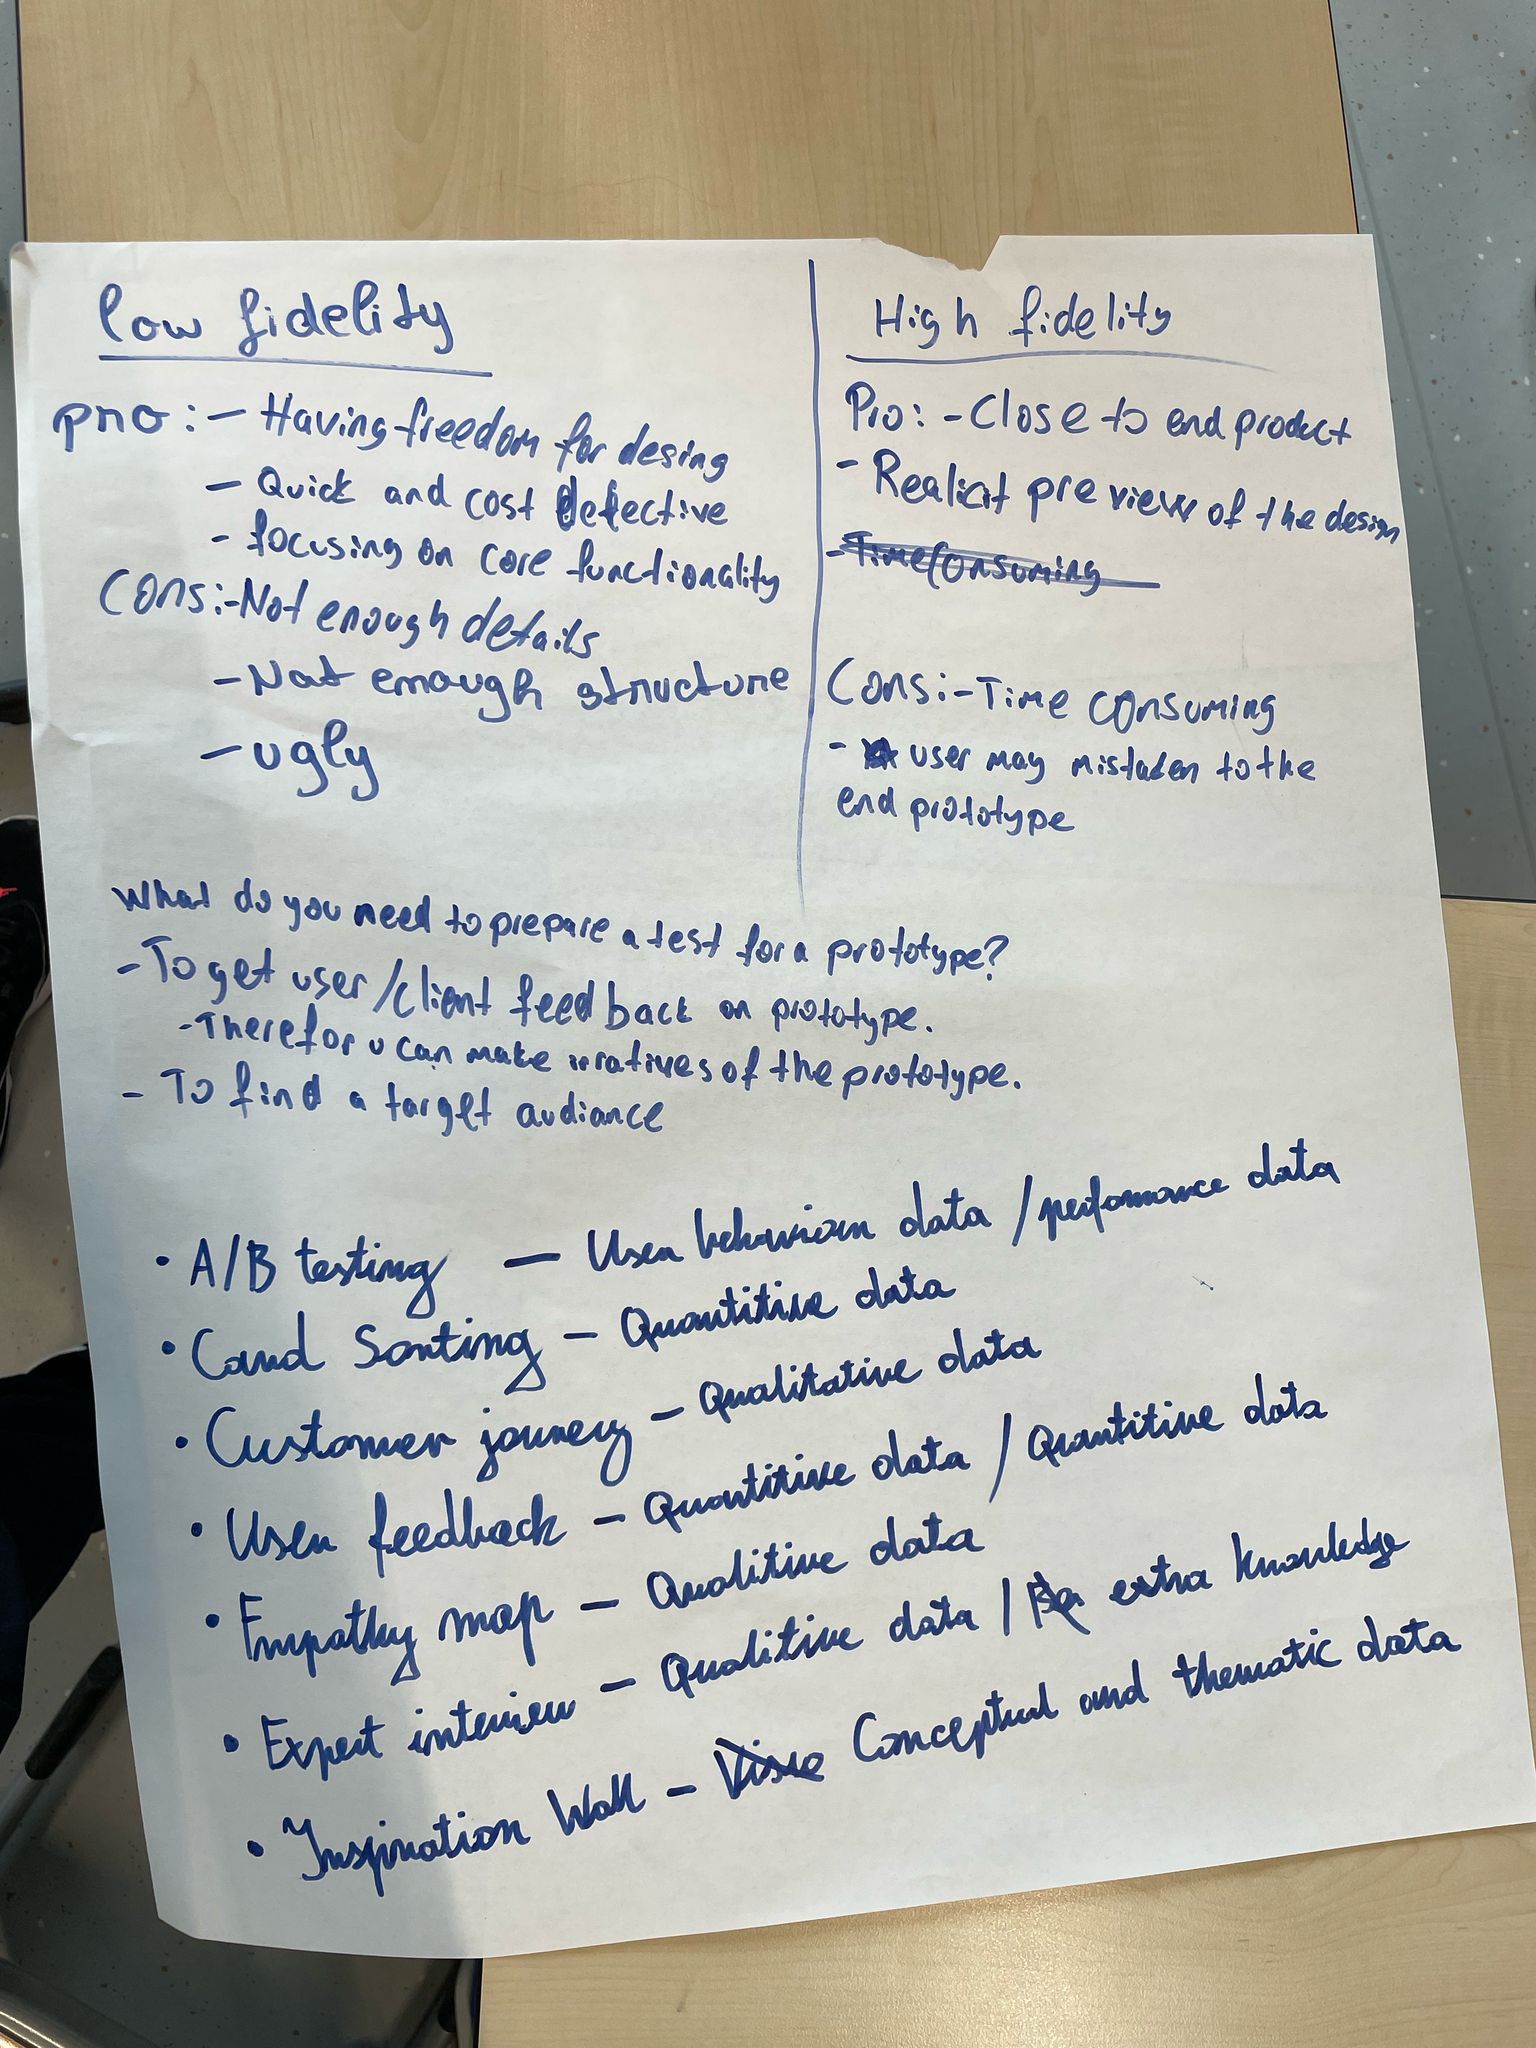 low fidelity
pro: - Having freedom for desing
- Quick and cost efective
- focusing on core functionality
Cons: - Not enough details
- Not enough structure
- ugly
High fidelity
Pro: - Close to end product
- Realicit preview of the design
- Time Consuming
Cons: - Time consuming
- user may mistaken to the
end prototype
What do you need to prepare a test for a prototype?
- To get user/client feedback on prototype.
- Therefor u can make irratives of the prototype.
- To find a target audiance
• A/B testing — User behaviour data / perfomance data
• Card Sorting – Quantitive data
• Customer jouney – Qualitative data
• User feedback – Quantitive data / Quantitive data
• Empathy map – Qualitive data
• Expert interview – Qualitive data / extra knowledge
• Inspiration Wall – Conceptual and thematic data